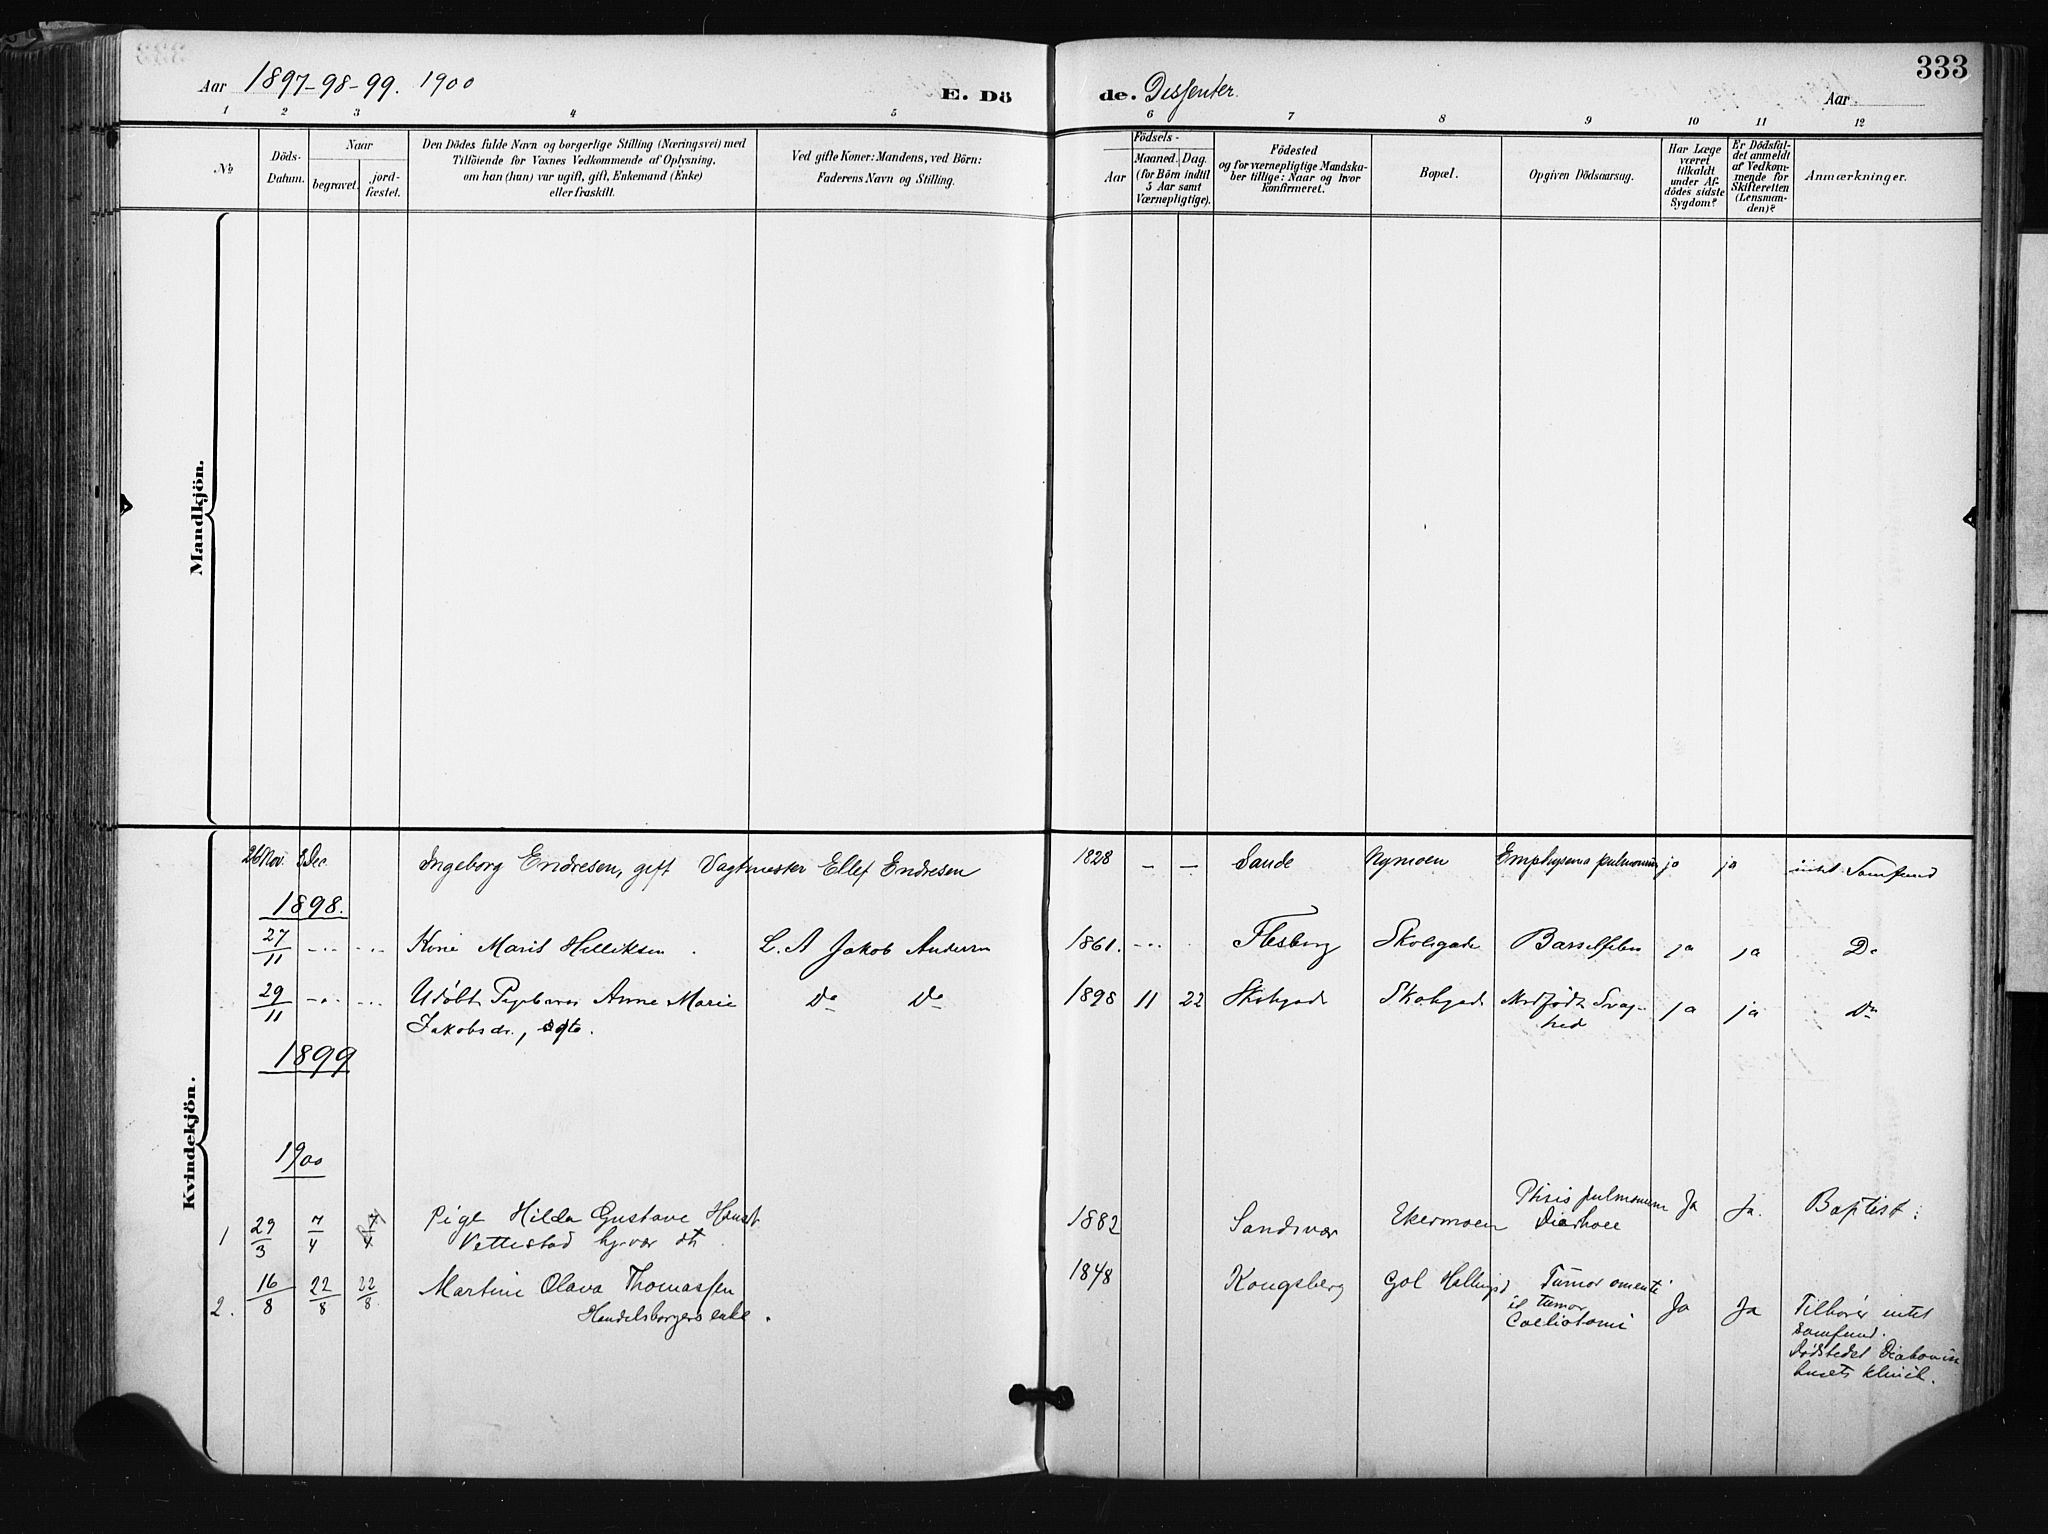 333
Aar 1897-98-99. 1900
E. Dö
de. Dissenter.
Aar
1 2 3 4 5 6 7 8 9 10 11 12
No
Döds-
Datum.
Naar
begravet.
jord-
fæstet.
Den Dödes fulde Navn og borgerlige Stilling (Næringsvei) med
Tilföiende for Voxnes Vedkommende af Oplysning,
om han (hun) var ugift, gift, Enkemand (Enke)
eller fraskilt.
Ved gifte Koner: Mandens, ved Börn:
Faderens Navn og Stilling.
Födsels-
Aar
Maaned. Dag.
(for Börn indtil
5 Aar samt
Værnepligtige).
Födested
og for værnepligtige Mandska-
ber tillige: Naar og hvor
konfirmeret.
Bopæl.
Opgiven Dödsaarsag.
Har Læge
været
tilkaldt
under Af-
dödes sidste
Sygdom?
Er Dödsfal-
det anmeldt
af Vedkom-
mende for
Skifteretten
(Lensman-
den)?
Anmærkninger.
Mandkjön.
Kvindekjön.
26 Nov. 3 Dec. Ingeborg Endresen, gift Vagtmester Ellef Endresen 1828 — — Sande Nymoen Emphysema pulmonum ja ja intet Samfund
1898.
27/11 Kone Marit Helliksen L. A Jakob Andersn 1861. Flesberg Skolegade Barselfeber ja ja Do
29/11 Udøbt Pigebarn Anne Marie Do Do 1898 11 22 Skolegade Skolegade Medfødt Svag-
Jakobsdr., ægte. hed ja ja Do
1899
1900
1 29/3 7/4 7/4 Pige Hilda Gustave
Vettestad 1882 Sandsvær Ekermoen Ptisis pulmonum
Diarhoee Ja Ja. Baptist.
2. 16/8 22/8 22/8 Martine Olava Thomassen
Handelsborgers enke. 1848 Kongsberg Gol Hallingd Tumor omenti
tumor
Coeliotomi Ja Ja Tilhører intet
Samfund.
Dødstedet Diakonisse
husets klinik.